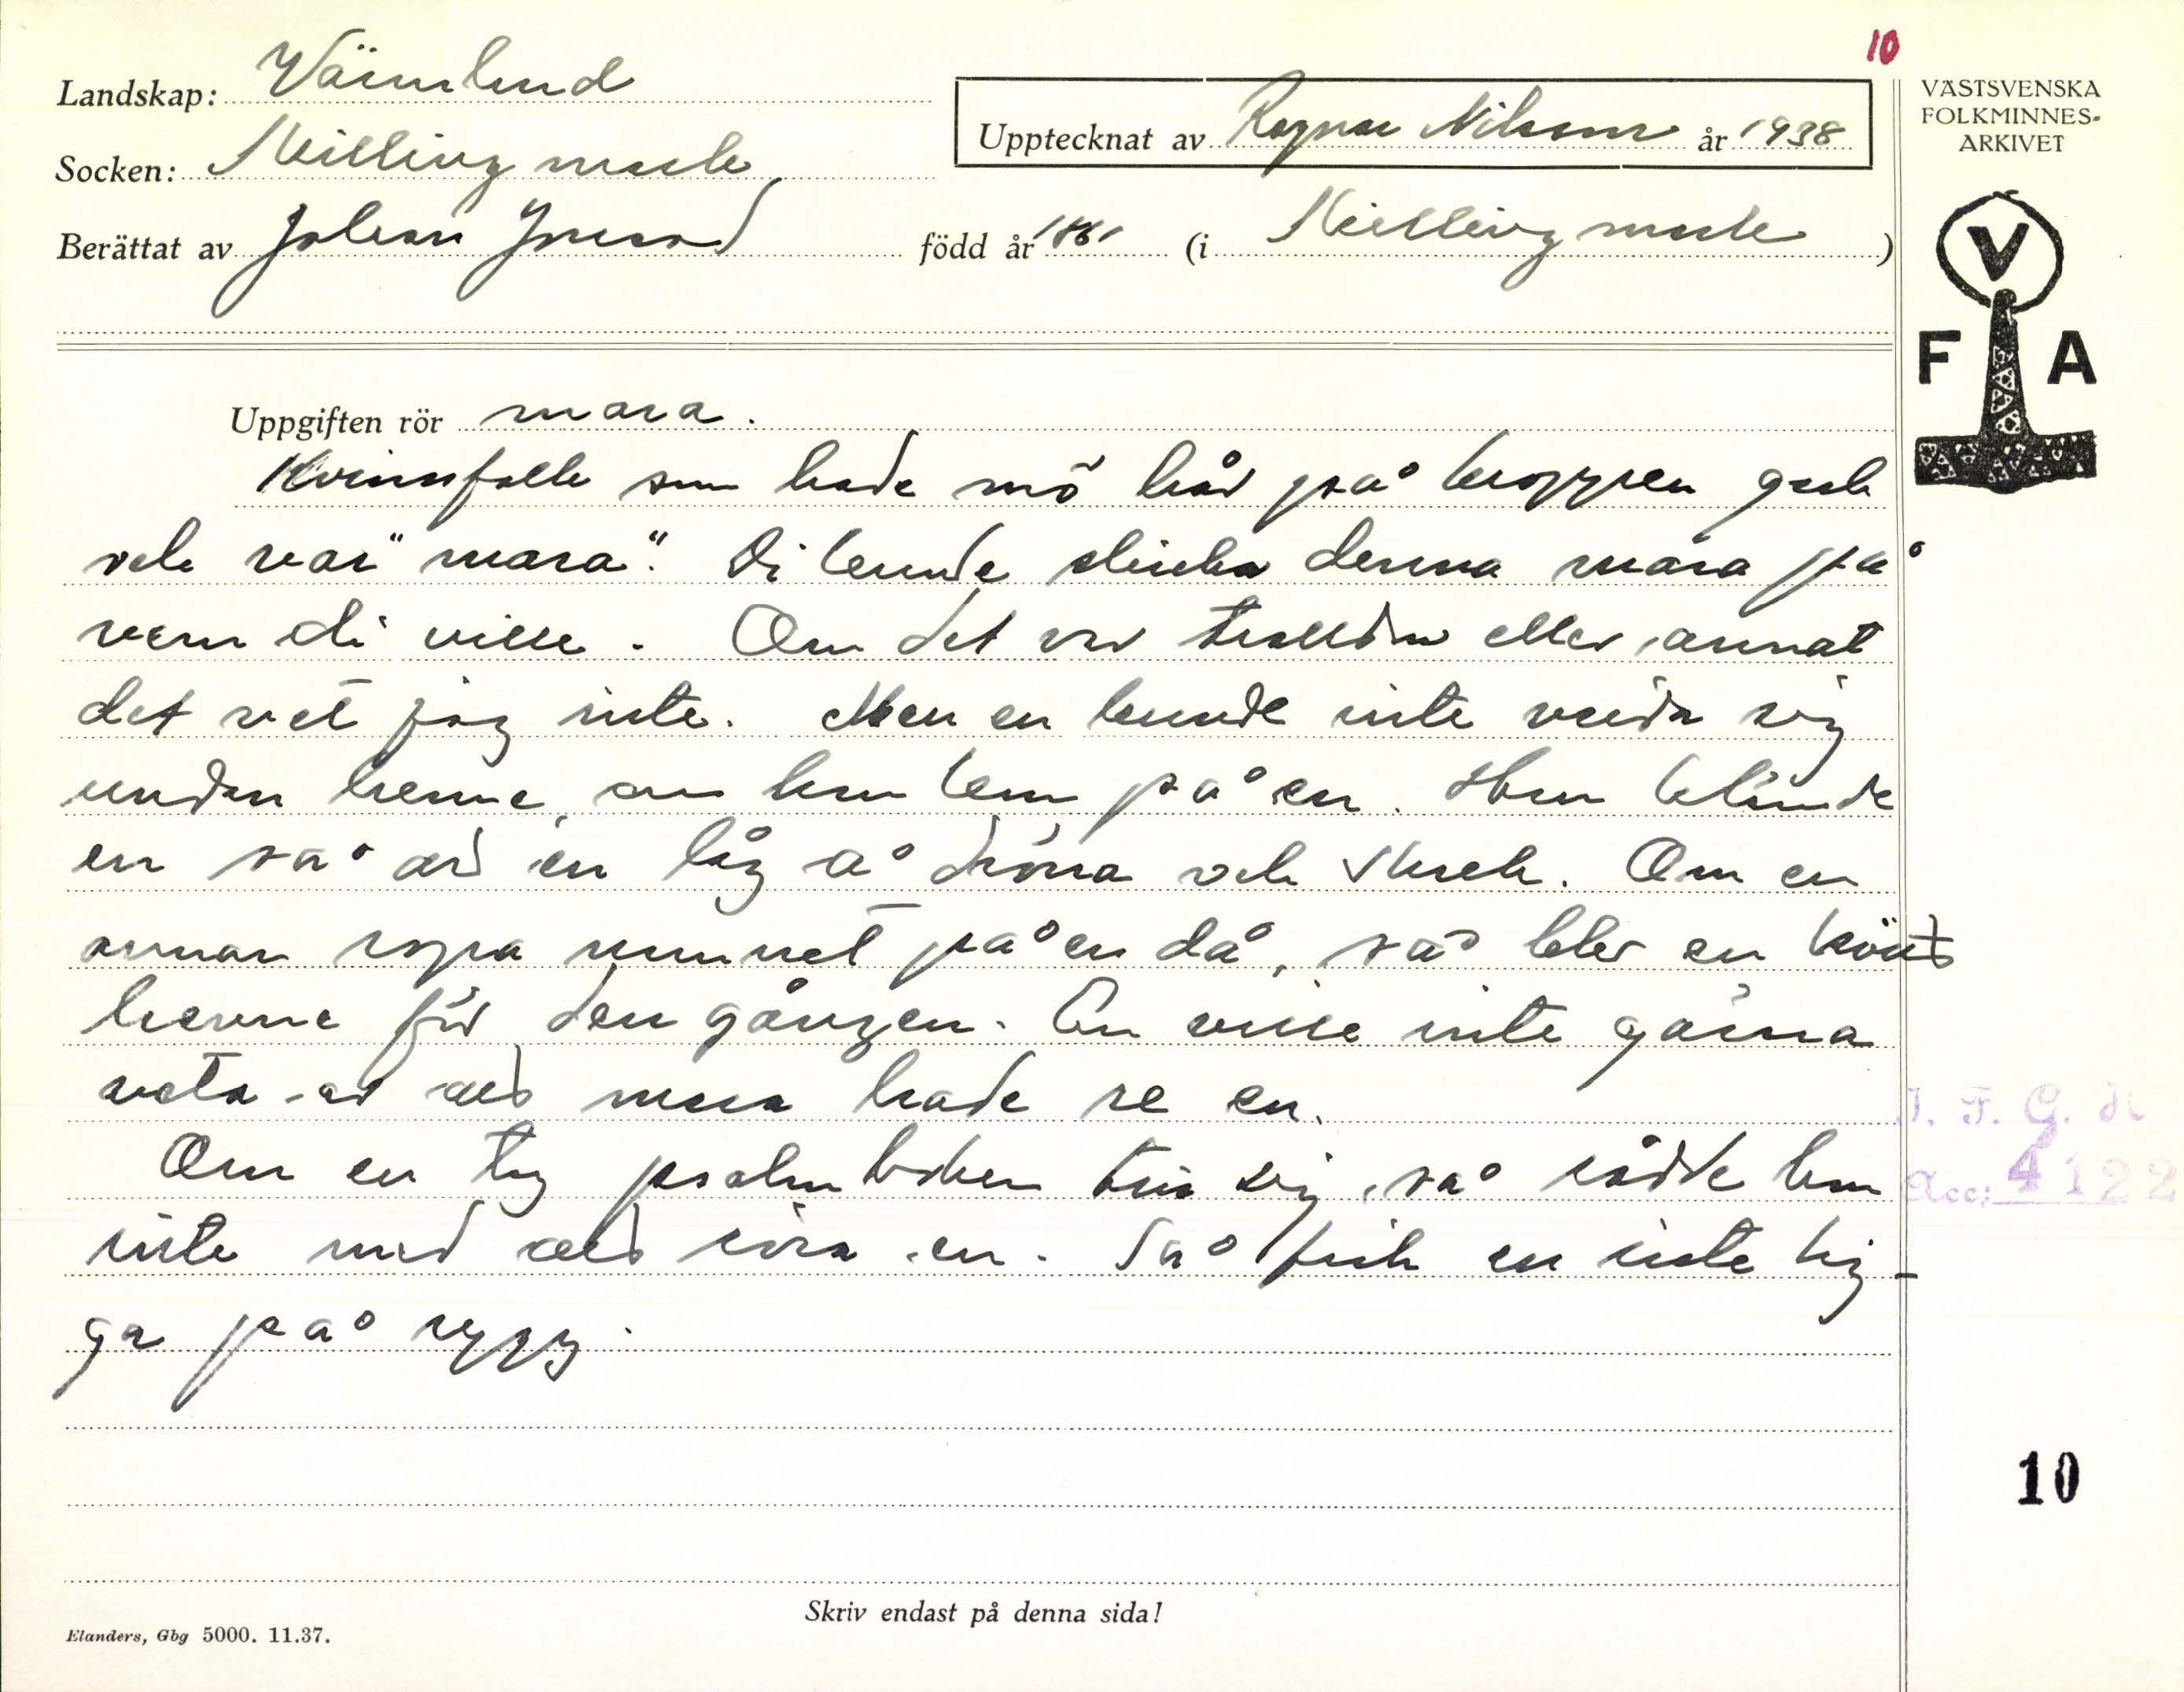 10
Landskap: Värmland
Socken: Skillingmark
Upptecknat av Ragnar Nilsson år 1938
Berättat av Johan født år 1861 (i Skillingmark)
VÄSTSVENSKA
FOLKMINNES-
ARKIVET
V
F A
Uppgiften rör mara.
Kvinnfolk som hade mö hår på kroppen gick
och var "mara". Di kunde skicka denna mara på
vem di ville. Om det var trolldom eller annat
det vet jag inte. Men en kunde inte vrida sig
undan henne, om hon kom på en. Hon klämde
en så att en låg å dröna och skrek. Om en
annan ropa namnet på en då, så blev en kvitt
henne för den gången. En ville inte gärna
veta av att mara hade re en.
Om en tog psalmboken hos sig, så rådde hon
inte med att röra en. Så fick en inte lig-
ga på rygg.
I. F. G. H
Acc: 4122
10
Skriv endast på denna sida!
Elanders, Gbg 5000. 11.37.